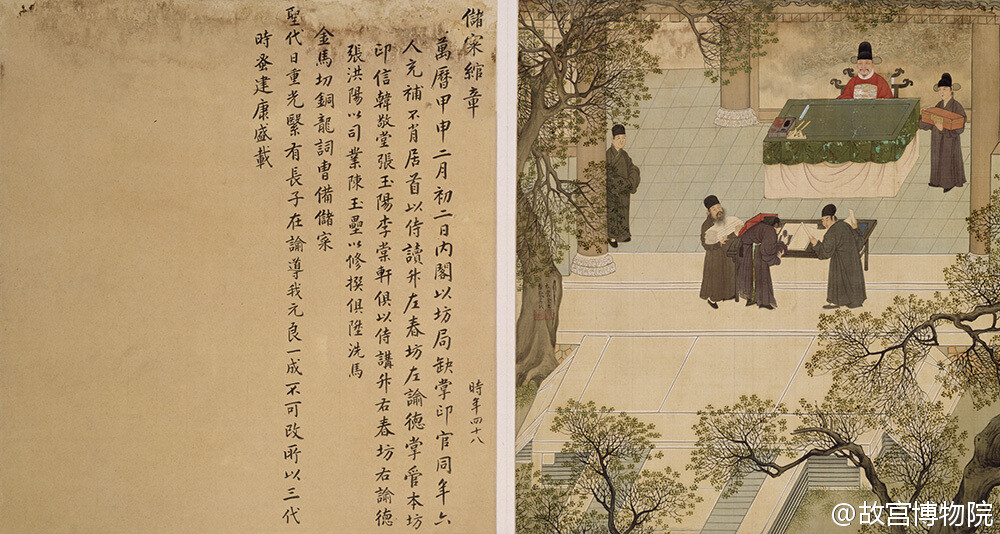 儲寀綰章
時年四十八
萬曆甲申二月初二日內閣以坊局缺掌印官同年六
人充補不肖居首以侍讀升左春坊左諭德掌管本坊
印信韓敬堂張玉陽李棠軒俱以侍講升右春坊右諭德
張洪陽以司業陳玉壘以修撰俱陞洗馬
金馬切銅龍詞曹備儲寀
聖代日重光繄有長子在諭導我元良一成不可改所以三代
時蚤建康盛載
@故宫博物院